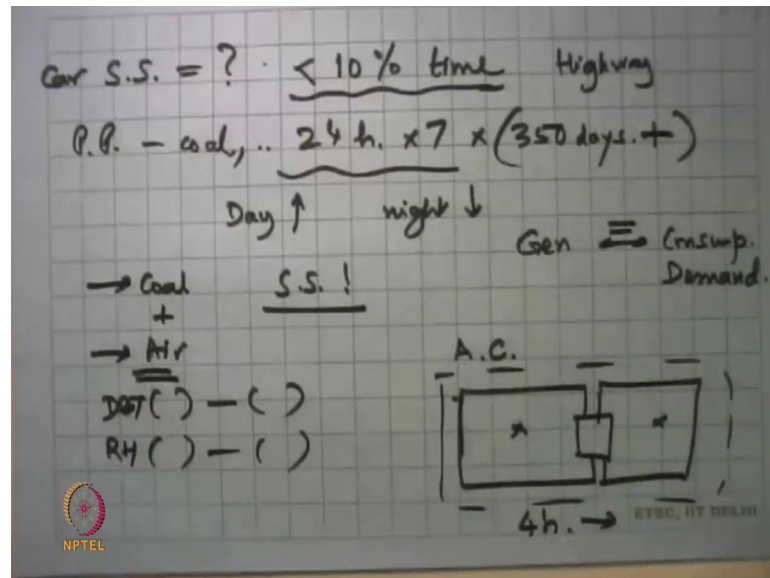 Car S.S. = ? . < 10 % time Highway
P.P. - coal, .. 24 h. x 7 x (350 days. +)
Day ↑ night ↓
Gen = Consump.
Demand.
→ Coal S.S. !
+
→ Air
A.C.
DBT ( ) - ( )
RH ( ) - ( )
4h. →
ETSC, IIT DELHI
NPTEL